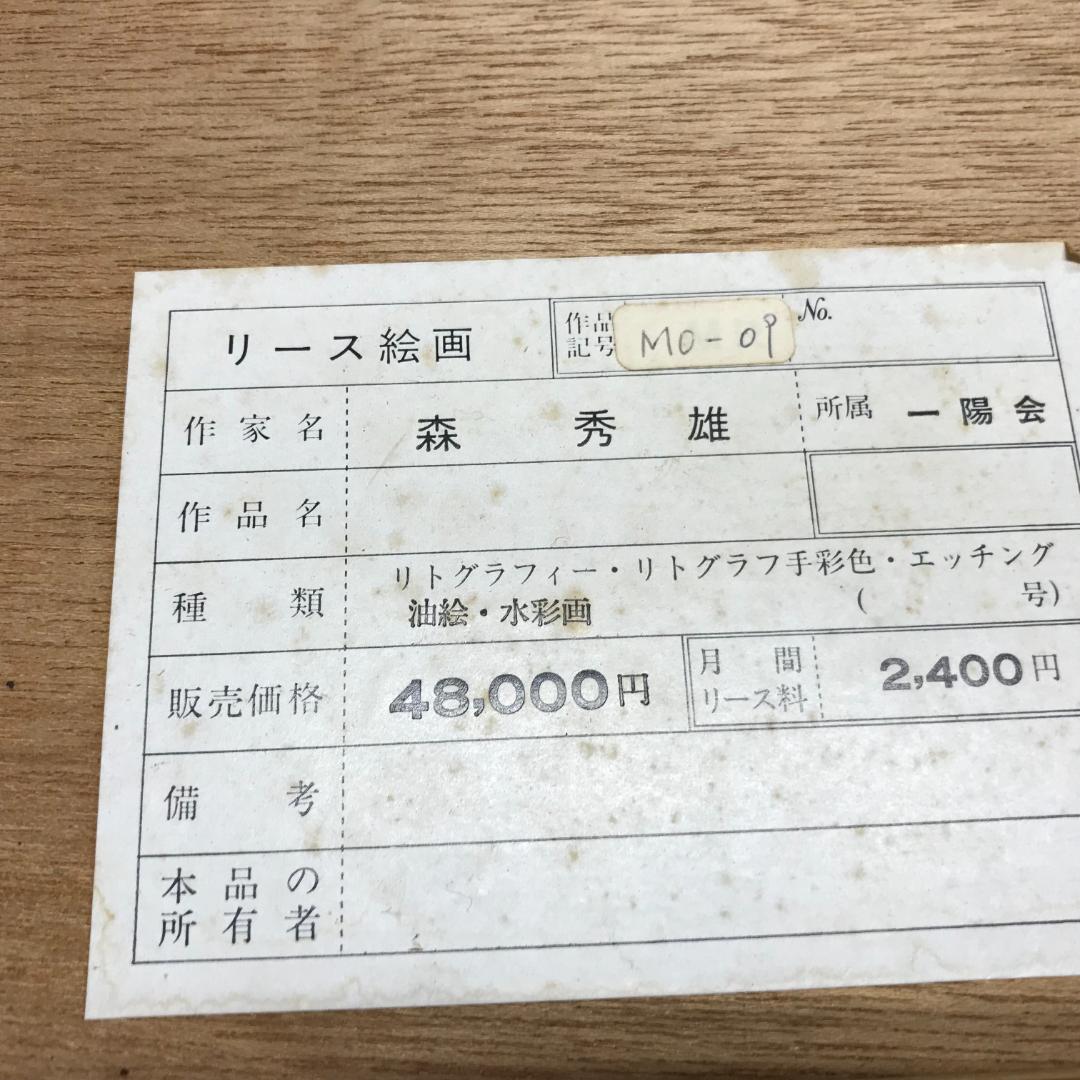 リース絵画
作品記号 MO-09 No.
作家名 森秀雄 所属 一陽会
作品名
種類 リトグラフィー・リトグラフ手彩色・エッチング
油絵・水彩画 ( 号)
販売価格 48,000円 月間リース料 2,400円
備考
本品の
所有者